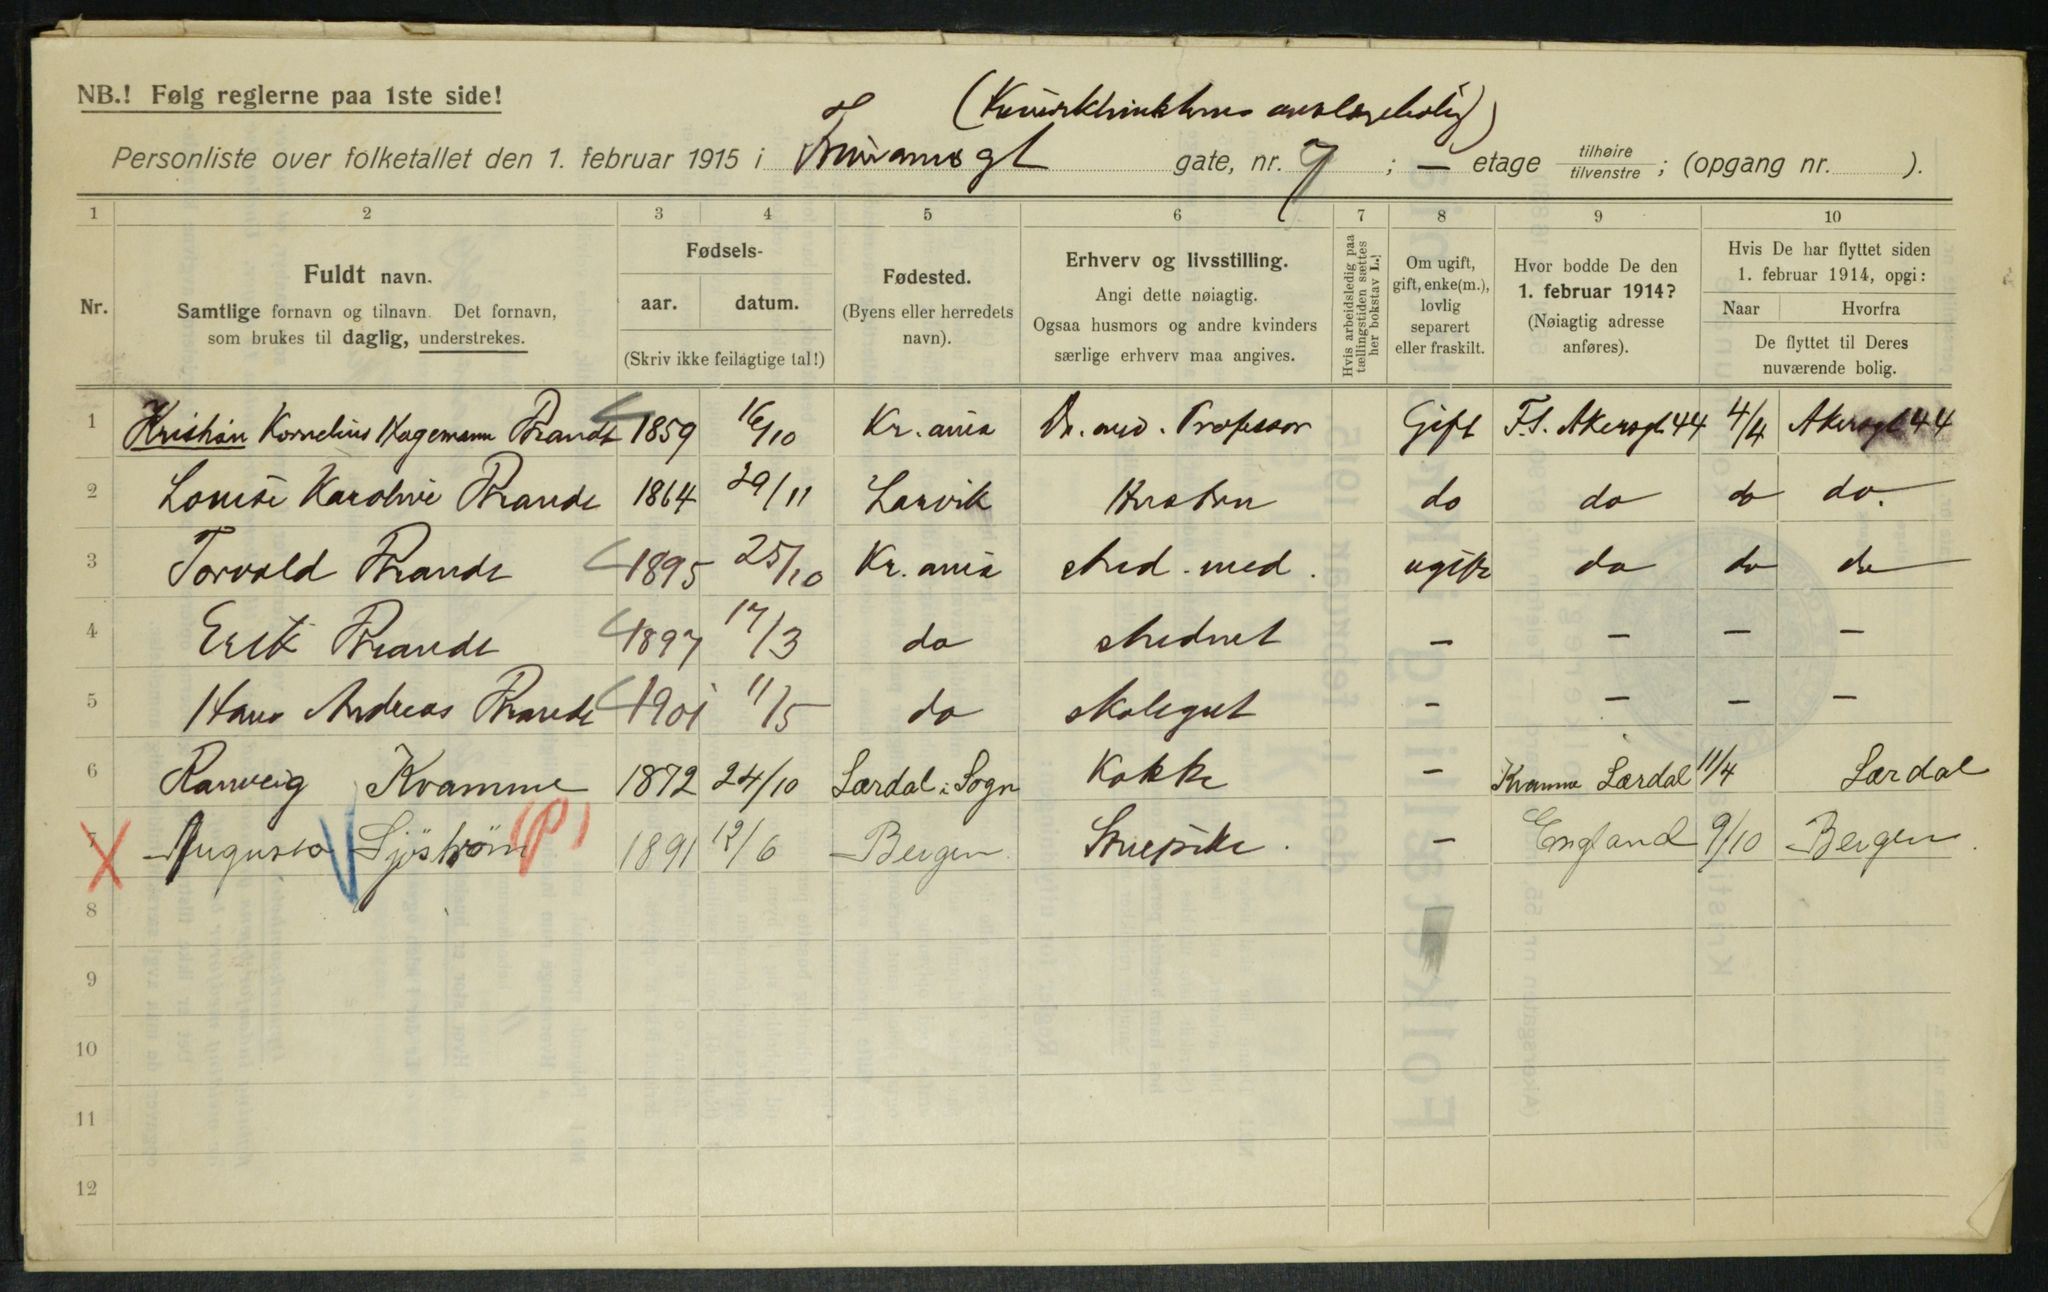 NB.! Følg reglerne paa 1ste side!
Personliste over folketallet den 1. februar 1915 i gate, nr. 7; — etage tilhøire tilvenstre; (opgang nr. ).
1 2 3 4 5 6 7 8 9 10
Nr.
Fuldt navn.
Samtlige fornavn og tilnavn. Det fornavn,
som brukes til daglig, understrekes.
Fødsels-
aar. datum.
(Skriv ikke feilagtige tal!)
Fødested.
(Byens eller herredets
navn).
Erhverv og livsstilling.
Angi dette nøiagtig.
Ogsaa husmors og andre kvinders
særlige erhverv maa angives.
Hvis arbeidsledig paa
tællingstiden sættes
her bokstav L.!
Om ugift,
gift, enke(m.),
lovlig
separert
eller fraskilt.
Hvor bodde De den
1. februar 1914?
(Nøiagtig adresse
anføres).
Hvis De har flyttet siden
1. februar 1914, opgi:
Naar Hvorfra
De flyttet til Deres
nuværende bolig.
1 Kristian Kornelius Hagemann Brandt 1859 16/10 Kr.ania Dr. med. Professor Gift F.S. Akersgt. 44 4/4 Akersgt 44
2 Louise Karoline Brandt 1864 29/11 Larvik Hustru do do do do.
3 Torvald Brandt 1895 25/10 Kr.ania stud. med. ugift do do do
4 Erik Brandt 1897 17/3 do student — — — —
5 Hans Andreas Brandt 1901 11/5 do skolegut — — — —
6 Ranveig Kvamme 1872 24/10 Lærdal i Sogn Kokke — Kvamme Lærdal 11/4 Lærdal
7 Augusta Sjöström (P) 1891 12/6 Bergen Stuepike. — England 9/10 Bergen.
8
9
10
11
12